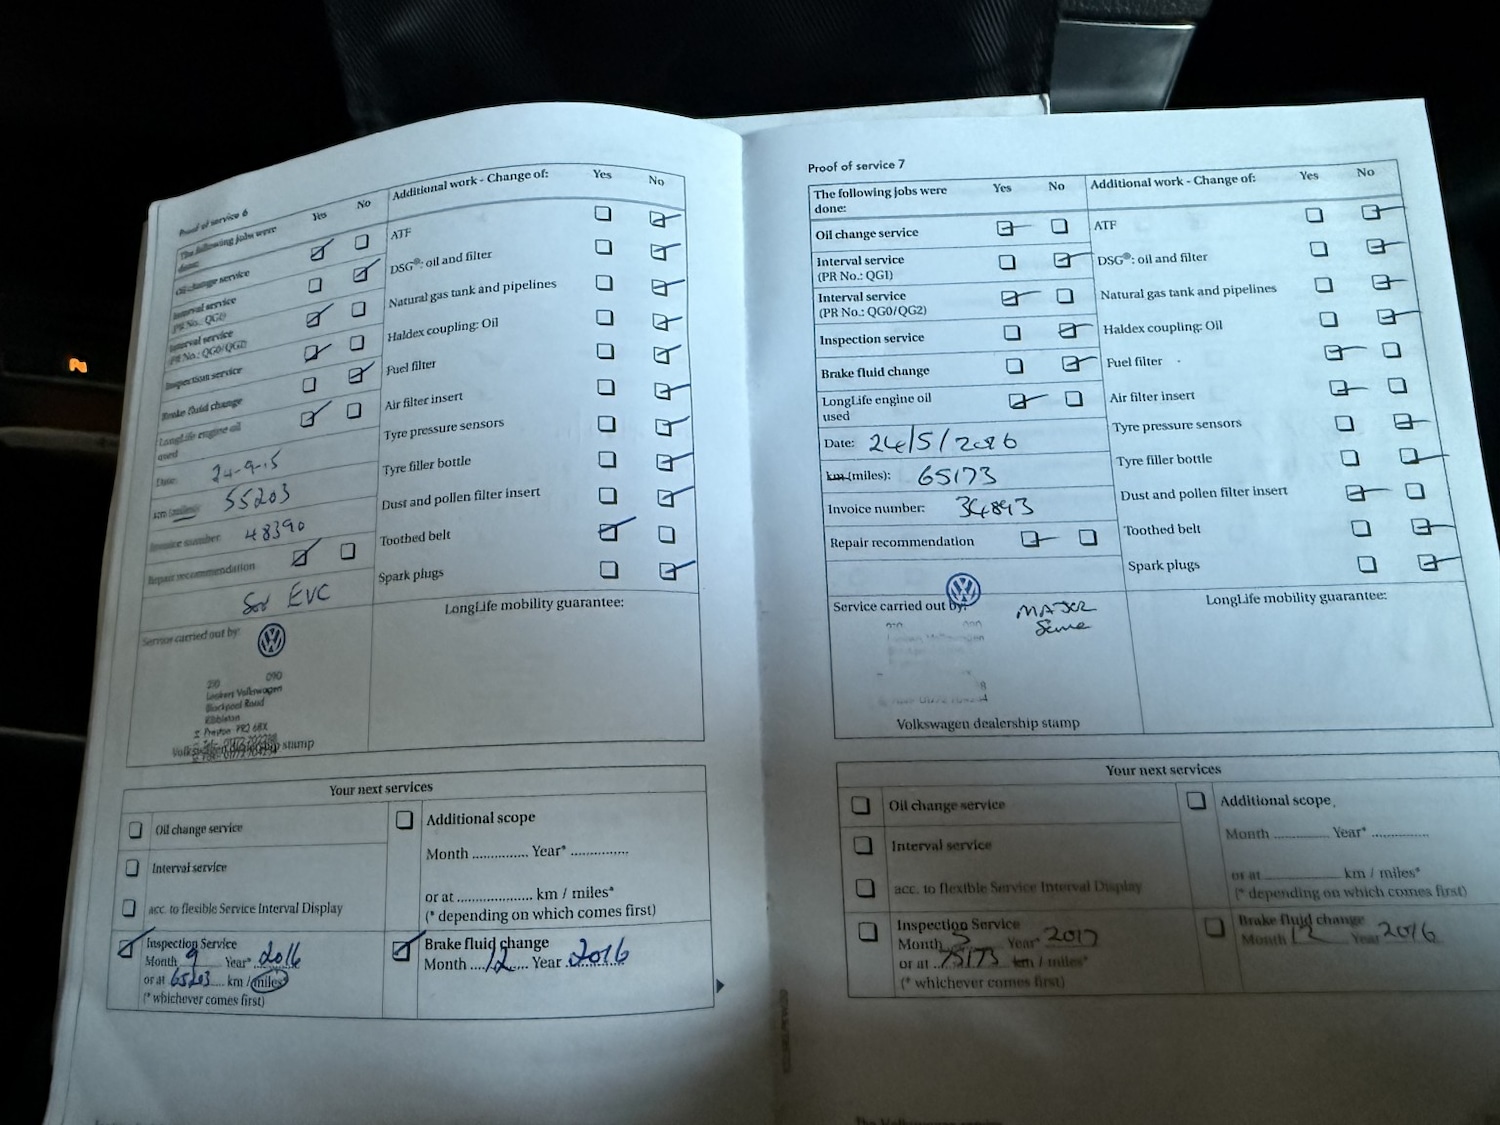 Proof of service 6
The following jobs were done:
Yes
No
Additional work - Change of:
Yes
No
Oil change service
ATF
Interval service
(PR No.: QG1)
DSG®: oil and filter
Interval service
(PR No.: QG0/QG2)
Natural gas tank and pipelines
Inspection service
Haldex coupling: Oil
Brake fluid change
Fuel filter
LongLife engine oil
used
Air filter insert
Date: 24-9-15
Tyre pressure sensors
km (miles): 55203
Tyre filler bottle
Invoice number: 48390
Dust and pollen filter insert
Repair recommendation
Toothed belt
EVC
Spark plugs
Service carried out by:
LongLife mobility guarantee:
210 090
Lookers Volkswagen
Blackpool Road
Ribbleton
Preston PR2 6BX
Volkswagen dealership stamp
Your next services
Oil change service
Interval service
acc. to flexible Service Interval Display
Inspection Service
Month 9 Year* 2016
or at 65203 km / miles*
(* whichever comes first)
Additional scope
Month .............. Year* ..............
or at .................. km / miles*
(* depending on which comes first)
Brake fluid change
Month 12 Year 2016
Proof of service 7
The following jobs were
done:
Yes
No
Additional work - Change of:
Yes
No
Oil change service
ATF
Interval service
(PR No.: QG1)
DSG®: oil and filter
Interval service
(PR No.: QG0/QG2)
Natural gas tank and pipelines
Inspection service
Haldex coupling: Oil
Brake fluid change
Fuel filter
LongLife engine oil
used
Air filter insert
Date: 24/5/2016
Tyre pressure sensors
km (miles): 65173
Tyre filler bottle
Invoice number: 34893
Dust and pollen filter insert
Repair recommendation
Toothed belt
Spark plugs
Service carried out by:
MAJOR
LongLife mobility guarantee:
Volkswagen dealership stamp
Your next services
Oil change service
Interval service
acc. to flexible Service Interval Display
Inspection Service
Month 5 Year* 2017
or at 75173 km / miles*
(* whichever comes first)
Additional scope
Month .............. Year* ..............
or at .................. km / miles*
(* depending on which comes first)
Brake fluid change
Month 12 Year 2016